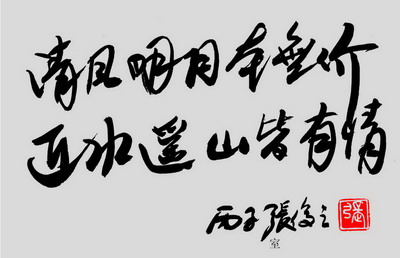 清风明月本無价
近水遥山皆有情
丙子張
室